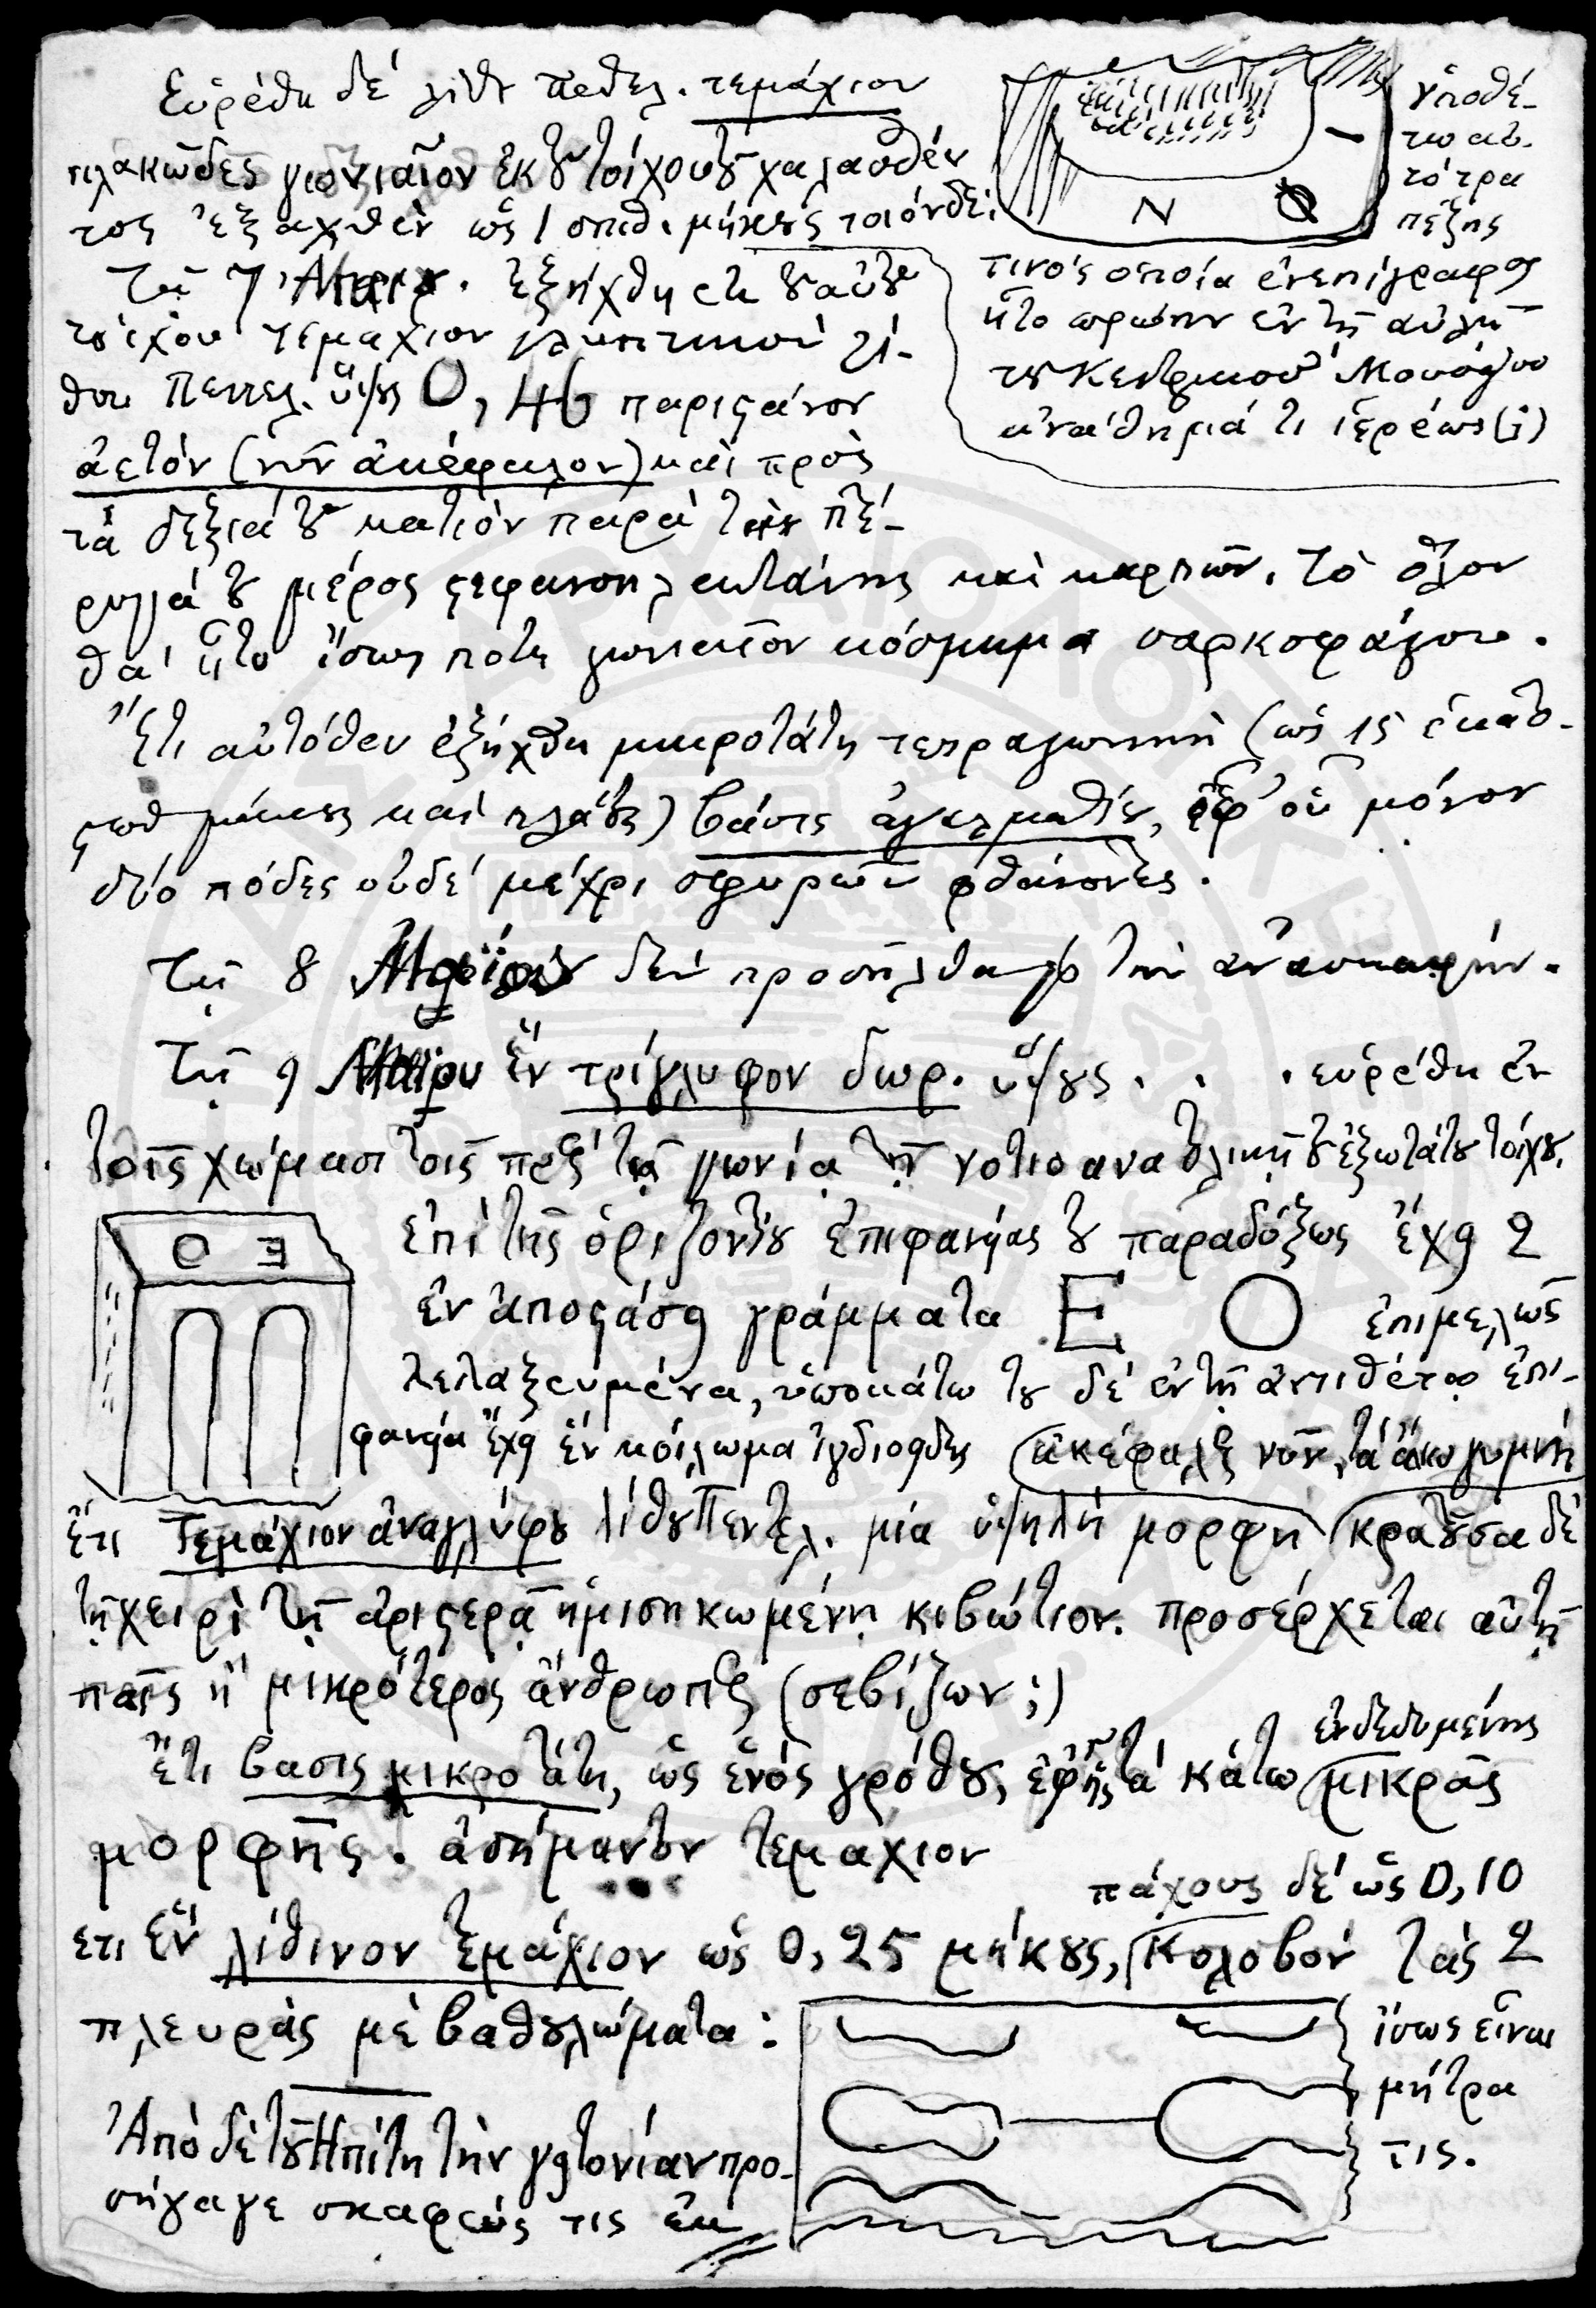 Εὑρέθη δὲ λίθου πεντελ. τεμάχιον
πλακῶδες γωνιαῖον ἐκ τοῦ τοίχου τοῦ χαλασθέν
τος ἐξαχθὲν ὡς 1 σπιθ. μήκους τοιόνδε:
N
ὑποθέ-
τω αὐ-
τὸ τρα
πέζης
τινός ὁποία ἐνεπίγραφος
ἦτο πρώην ἐν τῇ αὐλῇ
τοῦ Κεντρικοῦ Μουσείου
ἀνάθημά τι ἱερέως (;)
Τῇ 7 Ἀπριλ. ἐξήχθη ἐκ τοῦ αὐτοῦ
τοίχου τεμάχιον γλυπτικοῦ λί-
θου Πεντελ. ὕψους 0,46 παριστάνον
ἀετόν (νῦν ἀκέφαλον) καὶ πρὸς
τὰ δεξιά του κατιὸν παρὰ τὴν πτέ-
ρυγά του μέρος στεφανοπλεκτάνης καὶ καρπῶν. Τὸ ὅλον
θὰ ἦτο ἴσως ποτὲ γωνιαῖον κόσμημα σαρκοφάγου.
Ἔτι αὐτόθεν ἐξήχθη μικροτάτη τετραγωνικὴ (ὡς 15 ἑκατο-
στοῦ μήκους καὶ πλάτους) βάσις ἀγαλματίου, ἐφ' οὗ μόνον
δύο πόδες οὐδὲ μέχρι σφυρῶν φθάνοντες.
Τῇ 8 δὲν προσῆλθα εἰς τὴν ἀνασκαφήν.
Τῇ 9 ἓν τρίγλυφον δωρ. ὕψους . . . εὑρέθη ἐν
τοῖς χώμασι τοῖς πρὸς τῇ γωνίᾳ τῇ νοτιοανατολικῇ τοῦ ἐξωτάτου τοίχου.
Ο Ε
ἐπὶ τῆς ὁριζοντίου ἐπιφανείας του παραδόξως ἔχει 2
ἐν ἀποστάσει γράμματα Ε Ο ἐπιμελῶς
λελαξευμένα, ὑποκάτω του δὲ ἐν τῇ ἀντιθέτῳ ἐπι-
φανείᾳ ἔχει ἓν κοίλωμα ἰγδιοειδές (ἀκέφαλος νῦν, τὰ ἄνω γυμνή
ἔτι Τεμάχιον ἀναγλύφου λίθου Πεντελ. μία ὑψηλὴ μορφὴ κρατοῦσα δὲ
τῇ χειρὶ τῇ ἀριστερᾷ ἡμισηκωμένῃ κιβώτιον. προσέρχεται αὐτῇ
παῖς ἢ μικρότερος ἄνθρωπος (σεβίζων;)
ἔτι βάσις μικροτάτη, ὡς ἑνὸς γρόθου, ἐφ' ἧς τὰ κάτω ἐνδεδυμένης μικρᾶς
μορφῆς. ἀσήμαντον τεμάχιον
πάχους δὲ ὡς 0,10
ετι ἓν λίθινον τεμάχιον ὡς 0,25 μήκους, κολοβὸν τὰς 2
πλευρὰς μὲ βαθουλώματα:
ἴσως εἶναι
μήτρα
τις.
Ἀπὸ δὲ τοῦ Ηπίτη τὴν γειτονίαν προ-
σήγαγε σκαφεύς τις ἐκ